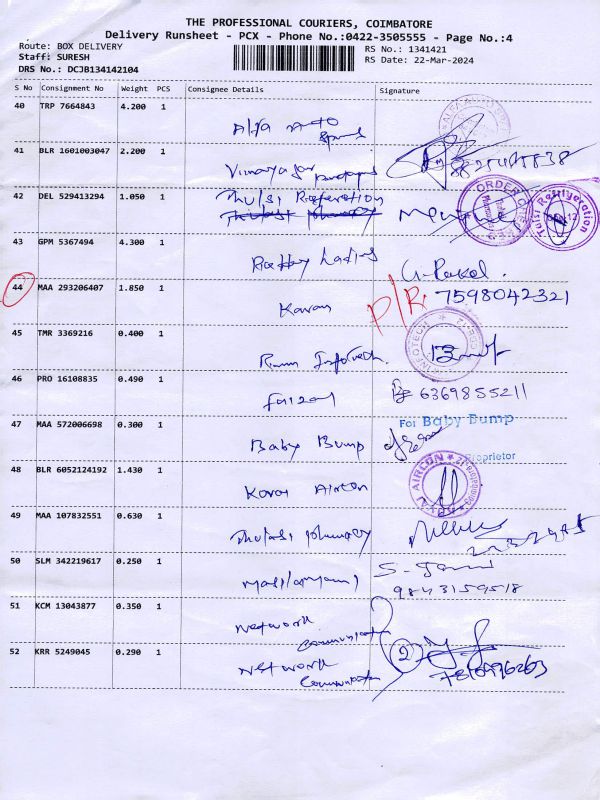 THE PROFESSIONAL COURIERS, COIMBATORE
Delivery Runsheet - PCX - Phone No.:0422-3505555 - Page No.:4
Route: BOX DELIVERY RS No.: 1341421
Staff: SURESH RS Date: 22-Mar-2024
DRS No.: DCJB134142104
S No Consignment No Weight PCS Consignee Details Signature
40 TRP 7664843 4.200 1
41 BLR 1601003047 2.200 1
42 DEL 529413294 1.050 1 Thulsi
ORDER
Tulsi Refrigeration
43 GPM 5367494 4.300 1
44 MAA 293206407 1.850 1 Karan P/R 7598042321
45 TMR 3369216 0.400 1 Infotech
46 PRO 16108835 0.490 1 Faizal 6369855211
For Baby Bump
47 MAA 572006698 0.300 1 Baby Bump
Proprietor
48 BLR 6052124192 1.430 1 Aircon
AIRCON
49 MAA 107832551 0.630 1
50 SLM 342219617 0.250 1 9843159518
51 KCM 13043877 0.350 1 Network
Communication
52 KRR 5249045 0.290 1 Network 2
Communication